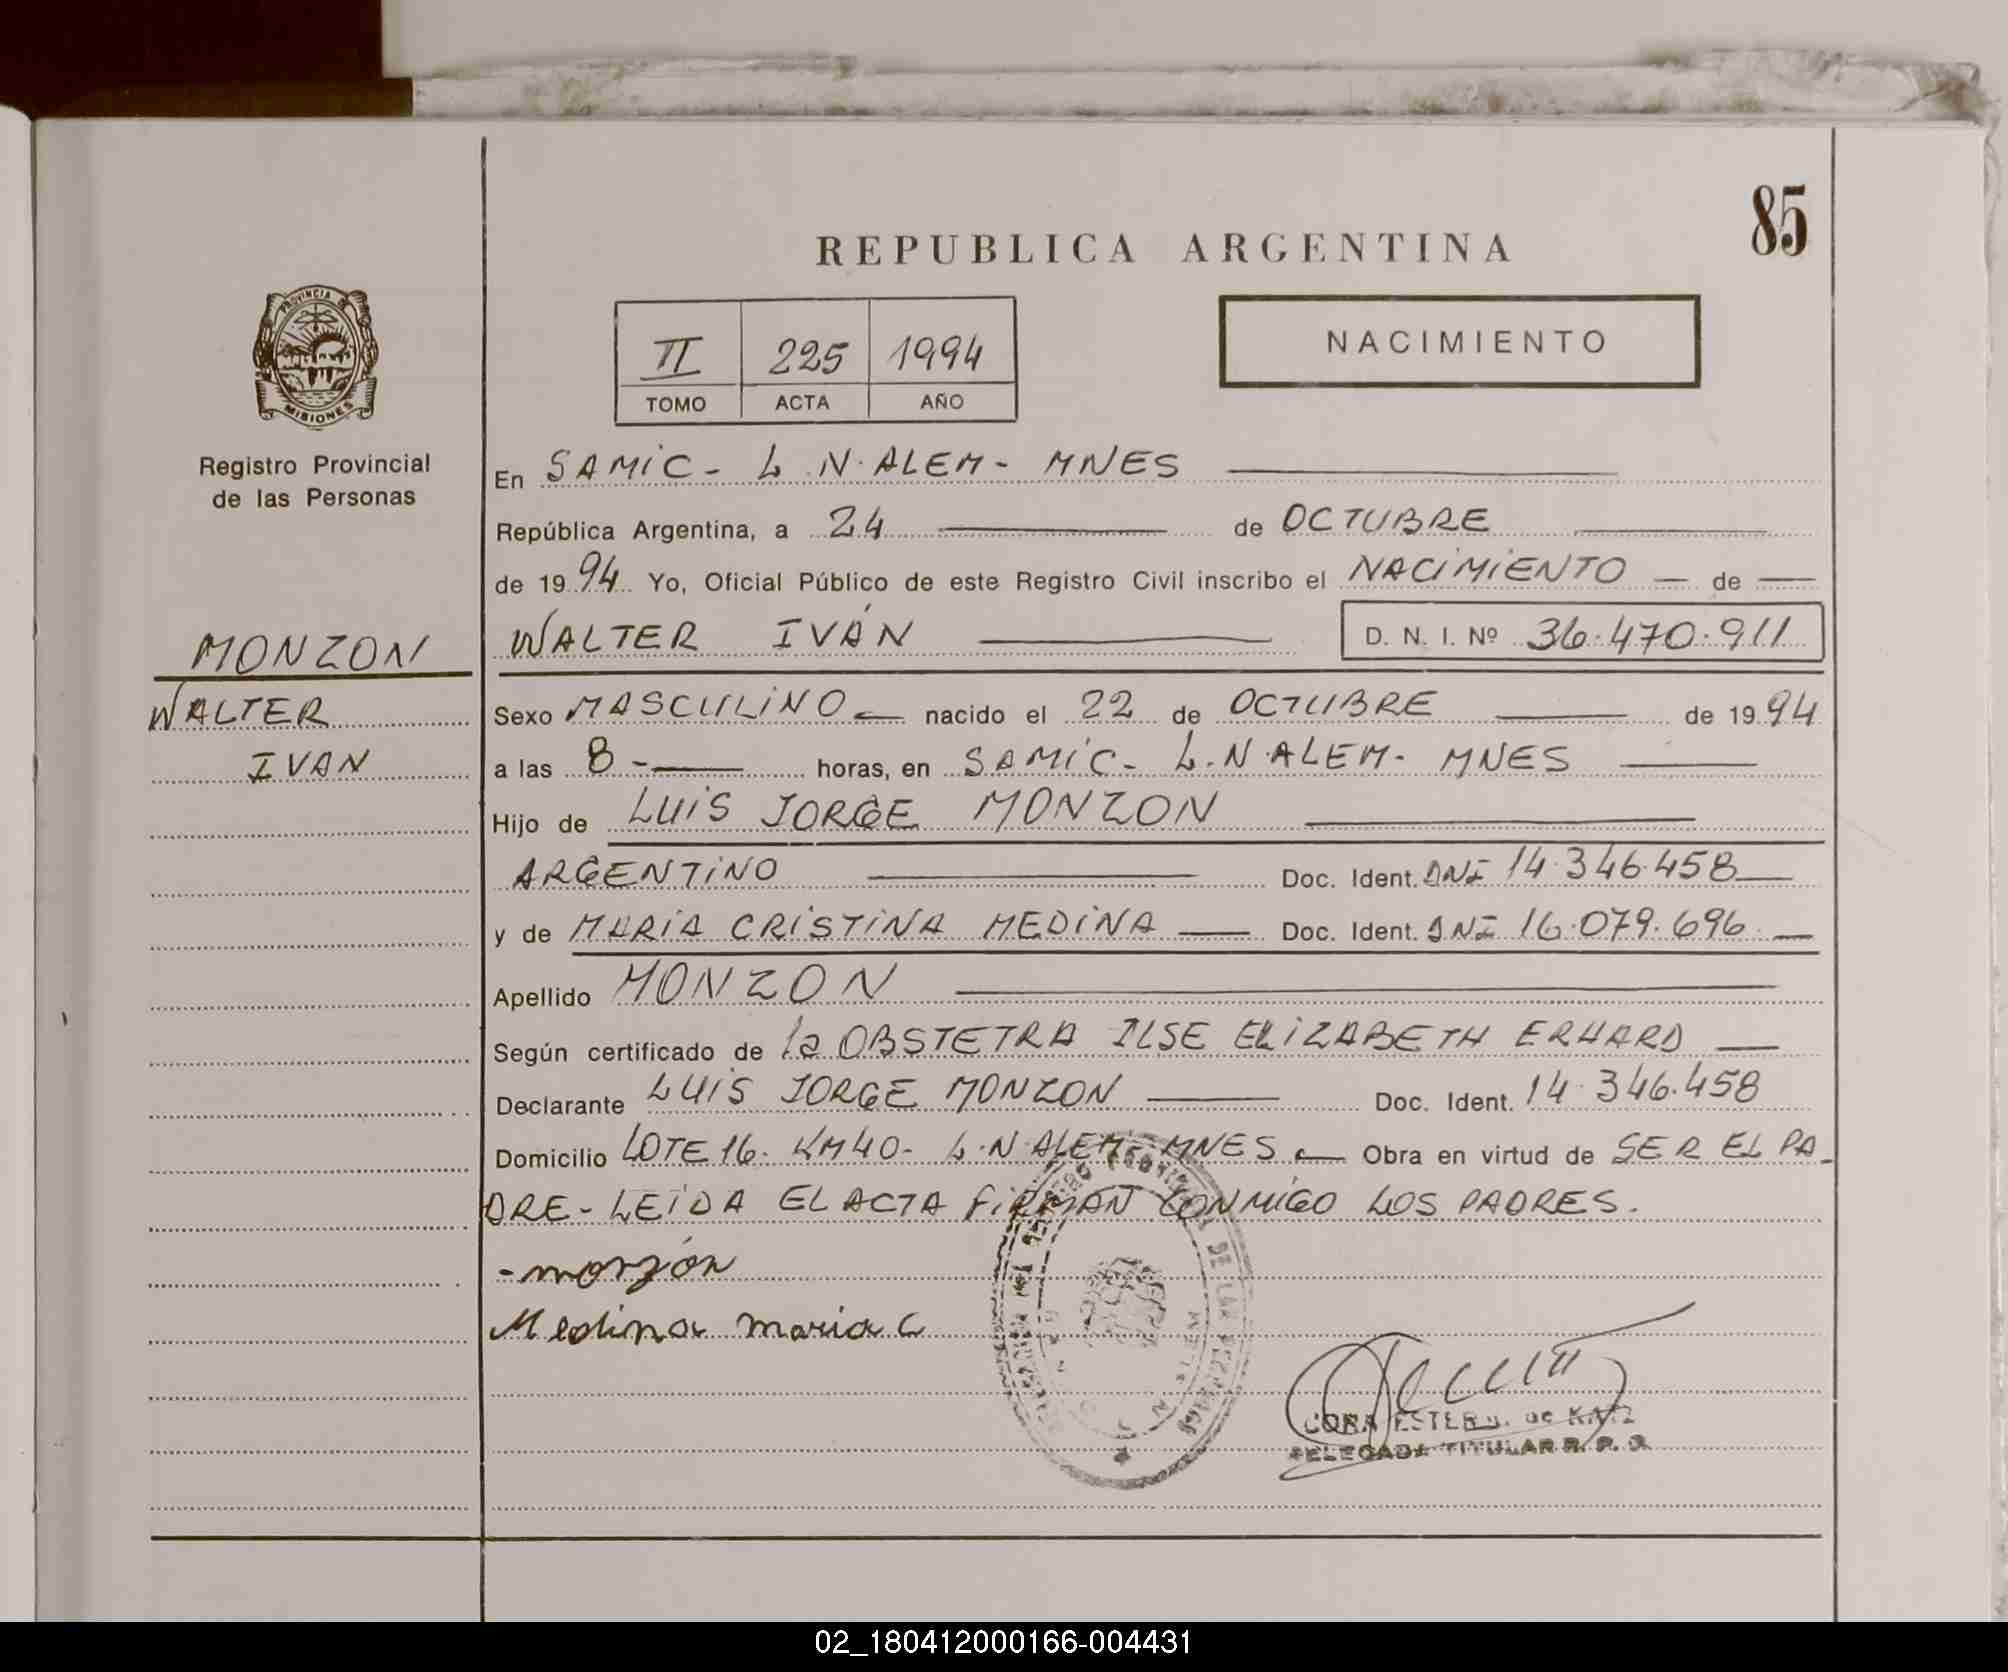 85
REPUBLICA ARGENTINA
II 225 1994
TOMO ACTA AÑO
NACIMIENTO
PROVINCIA DE
MISIONES
Registro Provincial
de las Personas
MONZON
WALTER
IVAN
En SAMIC - L.N. ALEM - MNES
República Argentina, a 24 de OCTUBRE
de 1994 Yo, Oficial Público de este Registro Civil inscribo el NACIMIENTO de
WALTER IVÁN D. N. I. Nº 36.470.911
Sexo MASCULINO nacido el 22 de OCTUBRE de 1994
a las 8 - horas, en SAMIC - L.N. ALEM - MNES
Hijo de LUIS JORGE MONZON
ARGENTINO Doc. Ident. DNI 14.346.458
y de MARIA CRISTINA MEDINA Doc. Ident. DNI 16.079.696
Apellido MONZON
Según certificado de la OBSTETRA ILSE ELIZABETH ERHARD
Declarante LUIS JORGE MONZON Doc. Ident. 14.346.458
Domicilio LOTE 16. KM 40 - L.N. ALEM - MNES Obra en virtud de SER EL PA-
DRE - LEIDA EL ACTA FIRMAN CONMIGO LOS PADRES.
- monzón
Medina maria c
CORA ESTER de KATZ
DELEGADA TITULAR R. P.
02_180412000166-004431